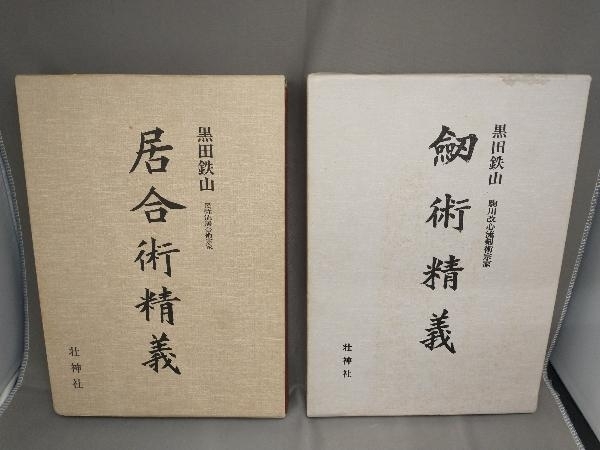 黒田鉄山
民弥流居合術宗家
居合術精義
壮神社
黒田鉄山
駒川改心流剣術宗家
劔術精義
壮神社